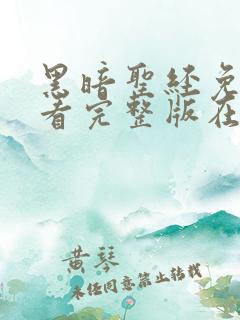 黑暗聖经免
看完整版在
黄琴
未经同意禁止转载